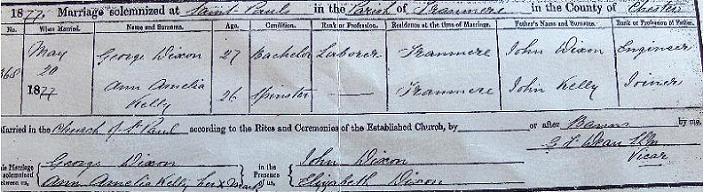 1877. Marriage solemnized at Saint Pauls in the Parish of Tranmere in the County of Chester
No. When Married. Name and Surname. Age. Condition. Rank or Profession. Residence at the time of Marriage. Father's Name and Surname. Rank or Profession of Father.
368 May 20 1877 George Dixon 27 Bachelor Laborer Tranmere John Dixon Engineer
Ann Amelia Kelly 26 Spinster — Tranmere John Kelly Joiner
Married in the Church of St Paul according to the Rites and Ceremonies of the Established Church, by or after Banns by me,
Vicar
This Marriage was solemnized between us, George Dixon
Ann Amelia Kelly her x Mark
in the Presence of us, John Dixon
Elizabeth Dixon